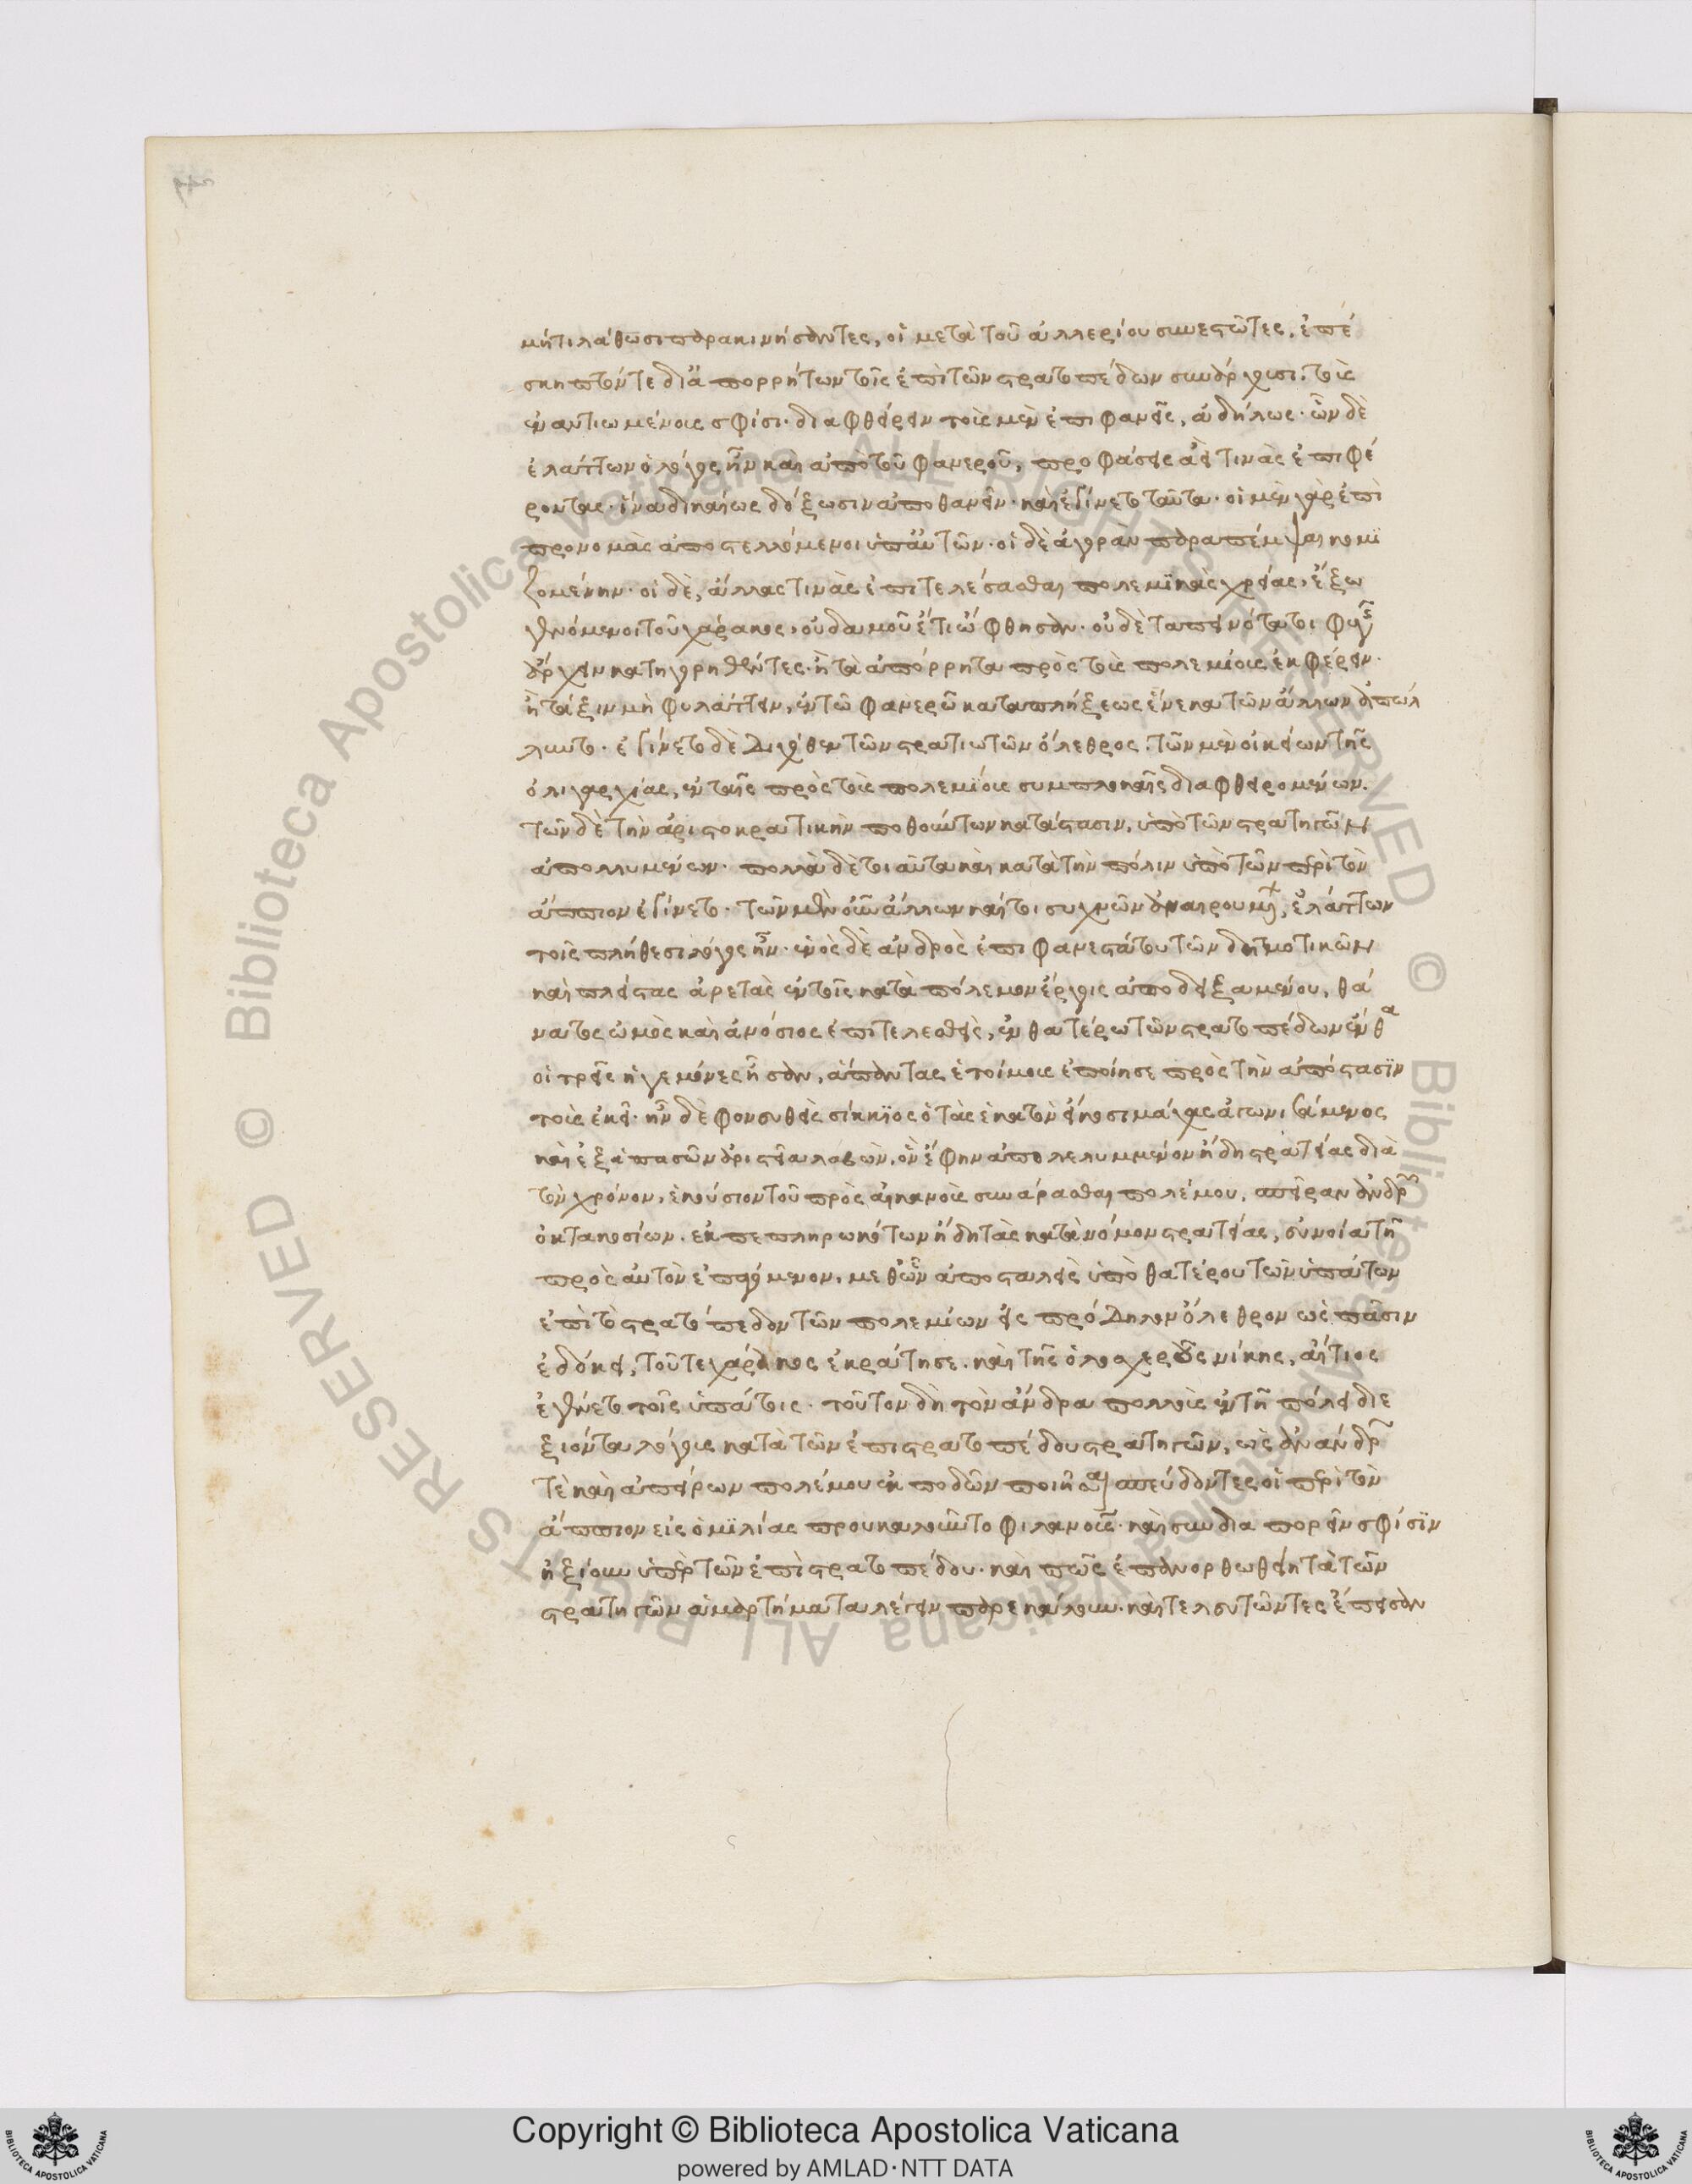 μήτι πάθωσι παρακινήσαντες, οἱ μετὰ τοῦ ἀππερίου συνεστῶτες, ἐπέ
σκηπτόν τε δι' ἀπορρήτων τοῖς ἐπὶ τῶν στρατοπέδων συνάρχουσι. τοὺς
ἐναντιωμένους σφίσι διαφθείρειν τοὺς μὲν ἐπιφανεῖς, ἀδήλως· ὧν δὲ
ἐλάττων ὁ λόγος ἦν καὶ ἀπὸ τοῦ φανεροῦ, προφάσεις ἀεί τινας ἐπιφέ
ροντας· ἵνα δικαίως δόξωσιν ἀποθανεῖν· καὶ ἐγίνετο ταῦτα· οἱ μὲν γὰρ ἐπὶ
προνομὰς ἀποστελλόμενοι ὑπ' αὐτῶν· οἱ δὲ ἀγορὰν παραπέμψαι κομι
ζομένην· οἱ δὲ, ἄλλας τινὰς ἐπιτελέσασθαι πολεμικὰς χρείας, ἔξω
γενόμενοι τοῦ χάρακος, οὐδαμοῦ ἔτι ὤφθησαν· οἱ δὲ ταπεινότατοι φυγῆς
ἄρχειν κατηγορηθέντες· ἢ τὰ ἀπόρρητα πρὸς τοὺς πολεμίους ἐκφέρειν·
ἢ τάξιν μὴ φυλάττειν, ἐν τῷ φανερῷ καταπλήξεως ἕνεκα τῶν ἄλλων ἀπώλ
λυντο· ἐγίνετο δὲ διχόθεν τῶν στρατιωτῶν ὄλεθρος· τῶν μὲν οἰκείων τῆς
ὀλιγαρχίας, ἐν ταῖς πρὸς τοὺς πολεμίους συμπλοκαῖς διαφθειρομένων.
τῶν δὲ τὴν ἀριστοκρατικὴν ποθούντων κατάστασιν, ὑπὸ τῶν στρατηγῶν
ἀπολλυμένων· πολλὰ δὲ τοιαῦτα καὶ κατὰ τὴν πόλιν ὑπὸ τῶν περὶ τὸν
ἄππιον ἐγίνετο· τῶν μὲν οὖν ἄλλων καίτοι συχνῶν ἀναιρουμένων, ἐλάττων
τοῖς πλήθεσι λόγος ἦν· ἑνὸς δὲ ἀνδρὸς ἐπιφανεστάτου τῶν δημοτικῶν
καὶ πλείστας ἀρετὰς ἐν τοῖς κατὰ πόλεμον ἔργοις ἀποδειξαμένου, θά
νατος ὠμὸς καὶ ἀνόσιος ἐπιτελεσθεὶς, ἐν θατέρῳ τῶν στρατοπέδων ἔνθα
οἱ τρεῖς ἡγεμόνες ἦσαν, ἅπαντας ἑτοίμους ἐποίησε πρὸς τὴν ἀπόστασιν
τοὺς ἐκεῖ· ἦν δὲ φονευθεὶς σίκκιος ὁ τὰς ἑκατὸν εἴκοσι μάχας ἀγωνισάμενος
καὶ ἐξ ἁπασῶν ἀριστεῖα λαβών, ὃν ἔφην ἀπολελυμένον ἤδη στρατείας διὰ
τὸν χρόνον, ἑκούσιον τοῦ πρὸς αἰκανοὺς συνάρασθαι πολέμου, σπεῖραν ἀνδρῶν
ὀκτακοσίων· ἐκπεπληρωκότων ἤδη τὰς κατὰ νόμον στρατείας, εὐνοίᾳ τῇ
πρὸς αὐτὸν ἐπαγόμενον, μεθ' ὧν ἀποσταλεὶς ὑπὸ θατέρου τῶν ὑπάτων
ἐπὶ τὸ στρατόπεδον τῶν πολεμίων εἰς πρόδηλον ὄλεθρον ὡς πᾶσιν
ἐδόκει, τοῦ τε χάρακος ἐκράτησε· καὶ τῆς ὁλοσχεροῦς νίκης, αἴτιος
ἐγένετο τοῖς ὑπάτοις· τοῦτον δὴ τὸν ἄνδρα πολλοὺς ἐν τῇ πόλει διε
ξιόντα λόγους κατὰ τῶν ἐπὶ στρατοπέδου στρατηγῶν, ὡς ἀνάνδρων
τὲ καὶ ἀπείρων πολέμου ἐκποδῶν ποιῆσαι σπεύδοντες οἱ περὶ τὸν
ἄππιον εἰς ὁμιλίας προυκαλοῦντο φιλανους· καὶ συνδιαπορεῖν σφίσιν
ἠξίουν ὑπὲρ τῶν ἐπὶ στρατοπέδου· καὶ πῶς ἐπανορθωθείη τὰ τῶν
στρατηγῶν ἁμαρτήματα λέγειν παρεκάλουν· καὶ τελευτῶντες ἔπεισαν